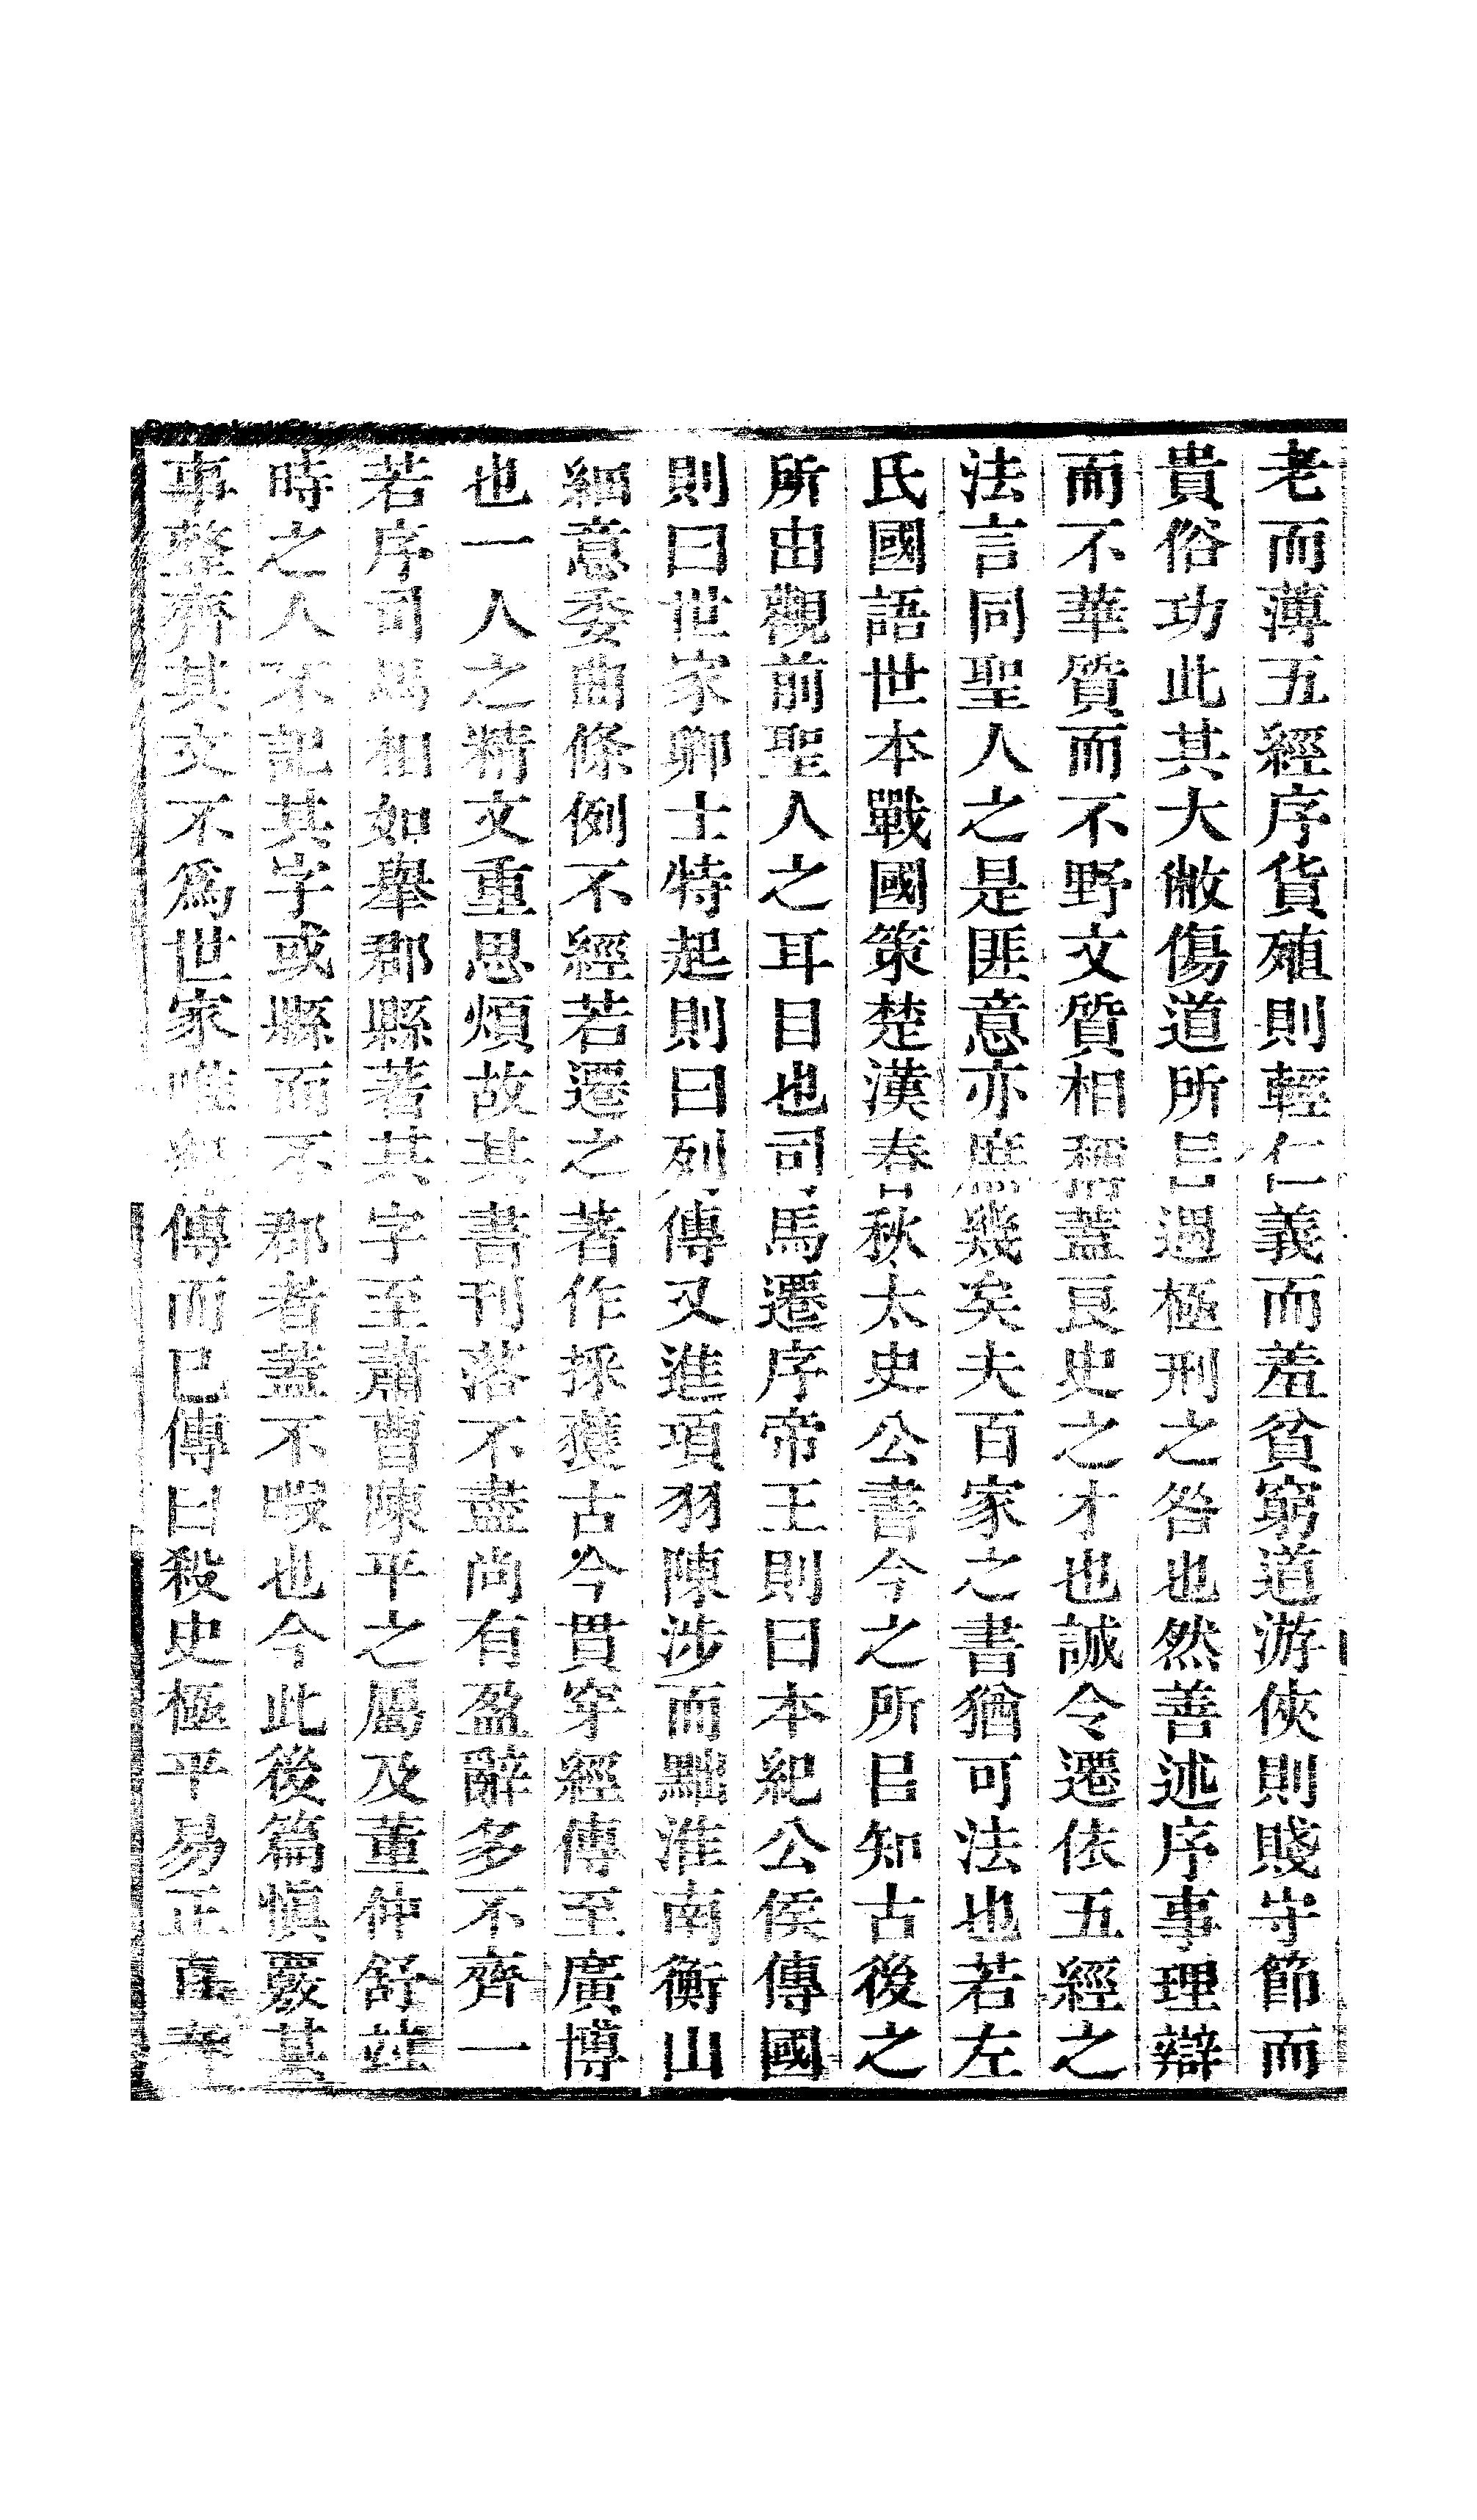 老而薄五經序貨殖則輕仁義而羞貧窮道游俠則賤守節而
貴俗功此其大敝傷道所㠯遇極刑之咎也然善述序事理辯
而不華質而不野文質相稱蓋良史之才也誠令遷依五經之
法言同聖人之是匪意亦庶幾矣夫百家之書猶可法也若左
氏國語世本戰國策楚漢春秋太史公書今之所㠯知古後之
所由觀前聖人之耳目也司馬遷序帝王則曰本紀公侯傳國
則曰世家卿士特起則曰列傳又進項羽陳涉而黜淮南衡山
細意委曲條例不經若遷之著作採獲古今貫穿經傳至廣博
也一人之精文重思煩故其書刊落不盡尚有盈辭多不齊一
若序司馬相如舉郡縣著其字至蕭曹陳平之屬及董仲舒竝
時之人不記其字或縣而不郡者蓋不暇也今此後篇慎覈其
事整齊其文不為世家唯紀傳而已傳曰殺史極平易正直春